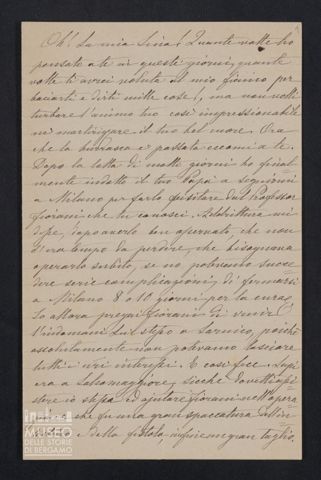 Oh! La mia Lina! Quante volte ho
pensato a te in questi giorni, quante
volte ti avrei voluta al mio fianco per
baciarti e dirti mille cose!, ma non volli
turbare l'animo tuo così impressionabile
nè martirizzare il tuo bel cuore. Ora
che la burrasca è passata eccomi a te.
Dopo la lotta di molti giorni ho final-
mente indotto il tuo Papà a seguirmi
a Milano per farlo visitare dal Professor
Fiorani che tu conosci. Addirittura mi
disse, dopo averlo ben osservato, che non
v'era tempo da perdere, che bisognava
operarlo subito, se no potevano succe-
dere serie complicazioni, di fermarsi
a Milano 8 o 10 giorni per la cura.
Io allora pregai Fiorani di venire
l'indomani lui stesso a Sarnico, poichè
assolutamente non potevamo lasciare
tutti i vari interessi. E così fece. Luigi
era a Salsomaggiore, sicchè dovetti assi-
stere io stessa ed aiutare Fiorani nell'opera-
zione che fu una gran spaccatura
e della fistola insieme gran taglio,
MUSEO
DELLE STORIE
DI BERGAMO